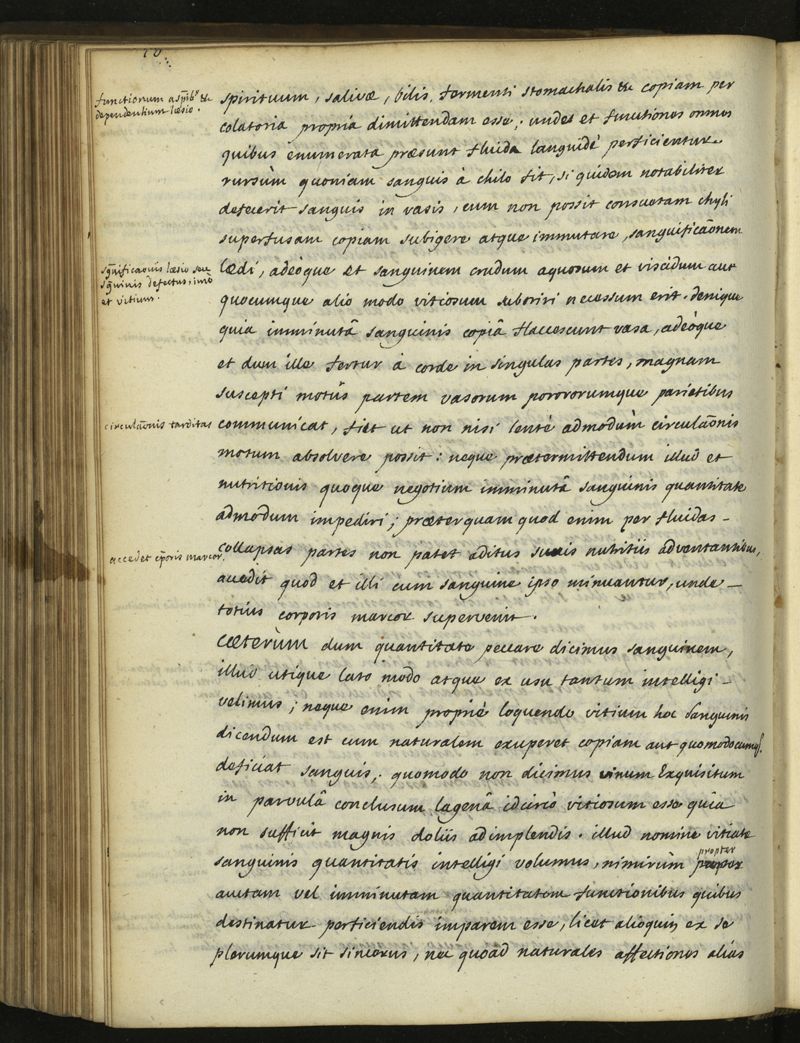 functionum a spirib9 &c
dependentium læsio.
spirituum, salivæ, bilis, fermenti stomachalis &c copiam per
colatoria propria dimittendam esse; undes et functiones omnes
quibus enumerata præsunt fluida languidè perficientur.
rursùm quoniam sanguis à chilo fit, si quidem notabiliter
defecerit sanguis in vasis, cum non possit consuetam chyli
superfusam copiam subigere atque immutare, sanguificaōnem
sgnificaōnis læsio seu
sguinis defectus, imò
et vitium.
lædi, adeòque et sanguinem crudum aquosum et viscidum aut
quocumque alio modo vitiosum suboriri necessum erit. denique
quia imminutâ sanguinis copiâ flaccescunt vasa, adeòque
et dum ille fertur à corde in singulas partes, magnam
suscepti motûs partem vasorum pororumque parietibus
circulaōnis tarditas
communicat, fiet ut non nisi lentè admodùm circulaōnis
motum absolvere possit: neque prætermittendum illud et
nutritionis quoque negotium imminutâ sanguinis quantitate
admodum impediri; præterquam quod enim per fluidas-
accedet cporis marcor
collapsas partes non patet aditus succis nutritiis adventantibus,
accedit quod et illi cum sanguine ipso minuantur, unde-
totius corporis marcor supervenit.
Cæterùm dum quantitate peccare dicimus sanguinem,
illud utique lato modo atque ex usu tantum intelligi-
velimus; neque enim propriè loquendo vitium hoc sanguinis
dicendum est cum naturalem exuperet copiam aut quomodocumq.
deficiat sanguis, quomodo non dicimus vinum exquisitum
in parvulâ conclusum lagenâ idcircò vitiosum esse quia
non sufficit magnis doliis adimplendis. illud nomine vitiatæ
sanguinis quantitatis intelligi volumus, nimirùm propter
auctam vel imminutam quantitatem functionibus quibus
destinatur perficiendis imparem esse, licet alioquin ex se
plerumque sit sincerus, nec quoàd naturales affectiones alias